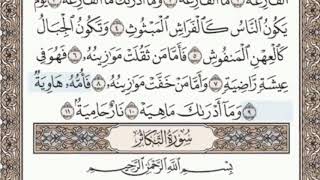 ٱلْقَارِعَةُ ١ مَا ٱلْقَارِعَةُ ٢ وَمَآ أَدْرَىٰكَ مَا ٱلْقَارِعَةُ ٣ يَوْمَ
يَكُونُ ٱلنَّاسُ كَٱلْفَرَاشِ ٱلْمَبْثُوثِ ٤ وَتَكُونُ ٱلْجِبَالُ
كَٱلْعِهْنِ ٱلْمَنفُوشِ ٥ فَأَمَّا مَن ثَقُلَتْ مَوَٰزِينُهُۥ ٦ فَهُوَ فِى
عِيشَةٍ رَّاضِيَةٍ ٧ وَأَمَّا مَنْ خَفَّتْ مَوَٰزِينُهُۥ ٨ فَأُمُّهُۥ هَاوِيَةٌ
٩ وَمَآ أَدْرَىٰكَ مَا هِيَهْ ١٠ نَارٌ حَامِيَةٌ ١١
سُورَةُ التَّكَاثُرِ
بِسْمِ ٱللَّهِ ٱلرَّحْمَٰنِ ٱلرَّحِيمِ